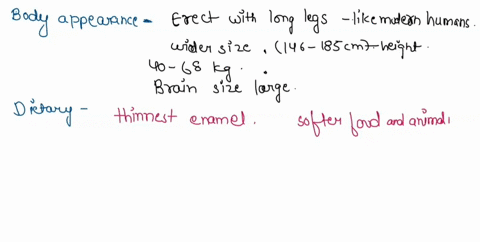 Body appearance - Erect with long legs - like modern humans.
wider size. (146-185cm)-height.
40-68 kg.
Brain size large.
Dietary - thinnest enamel. softer food and animal